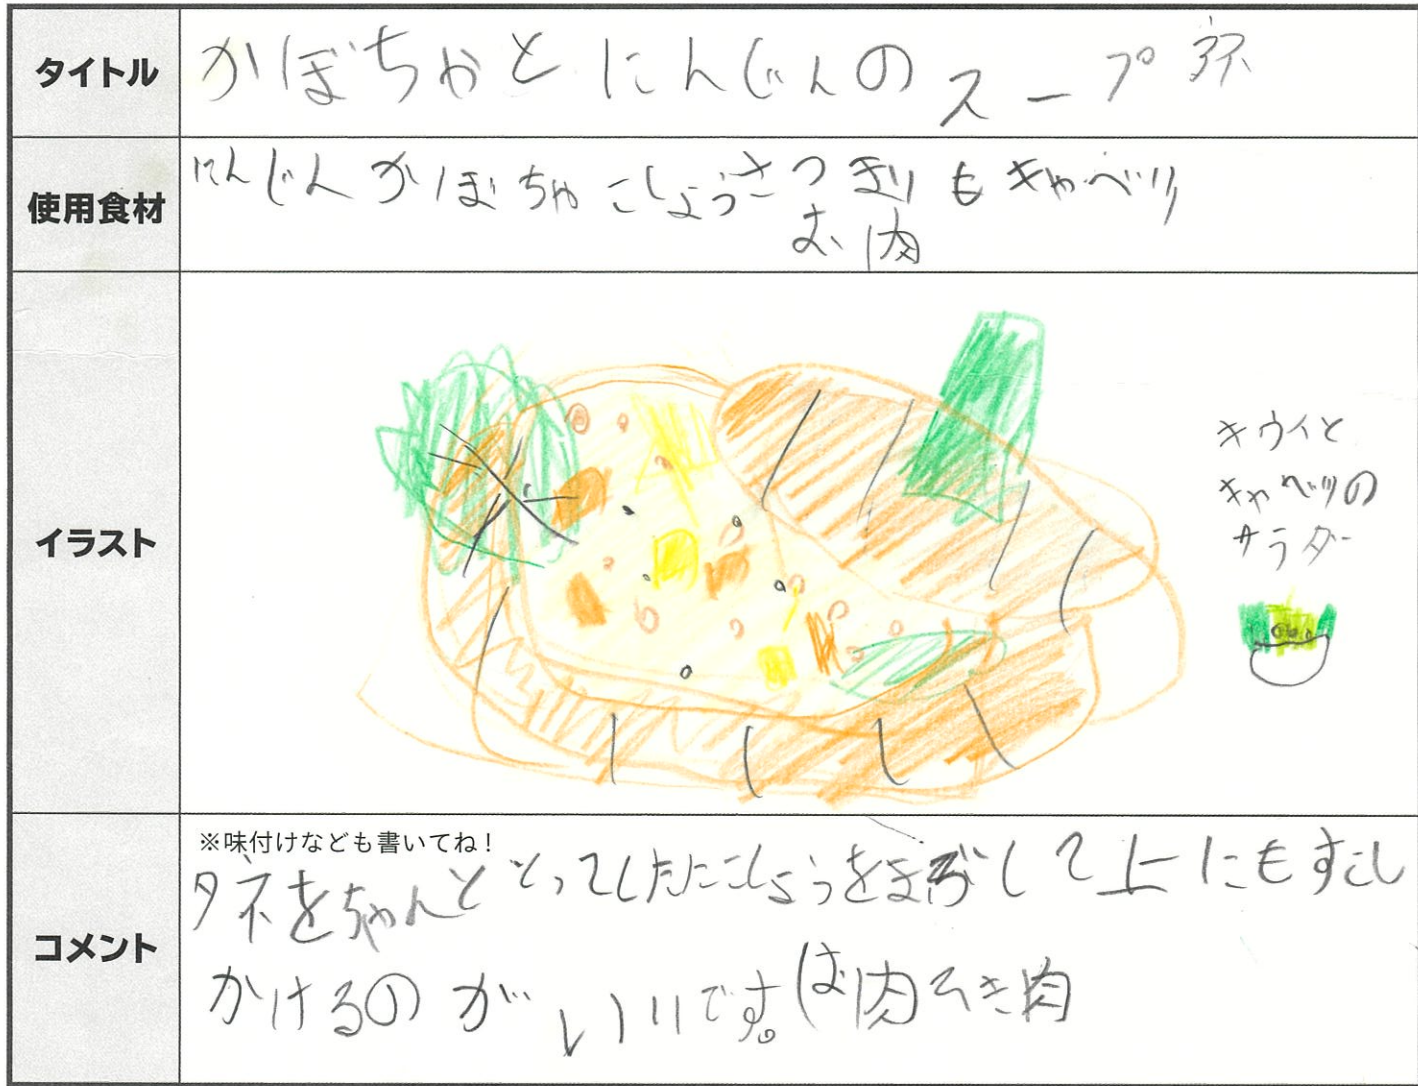 タイトル
かぼちゃとにんじんのスープ
使用食材
にんじん かぼちゃ こしょう さつまいも キャベツ
お肉
イラスト
キウイと
キャベツの
サラダー
コメント
※味付けなども書いてね!
タネをちゃんととってしたにこしょうをまぶして上にもすこし
かけるのがいいです。(お肉 ひき肉